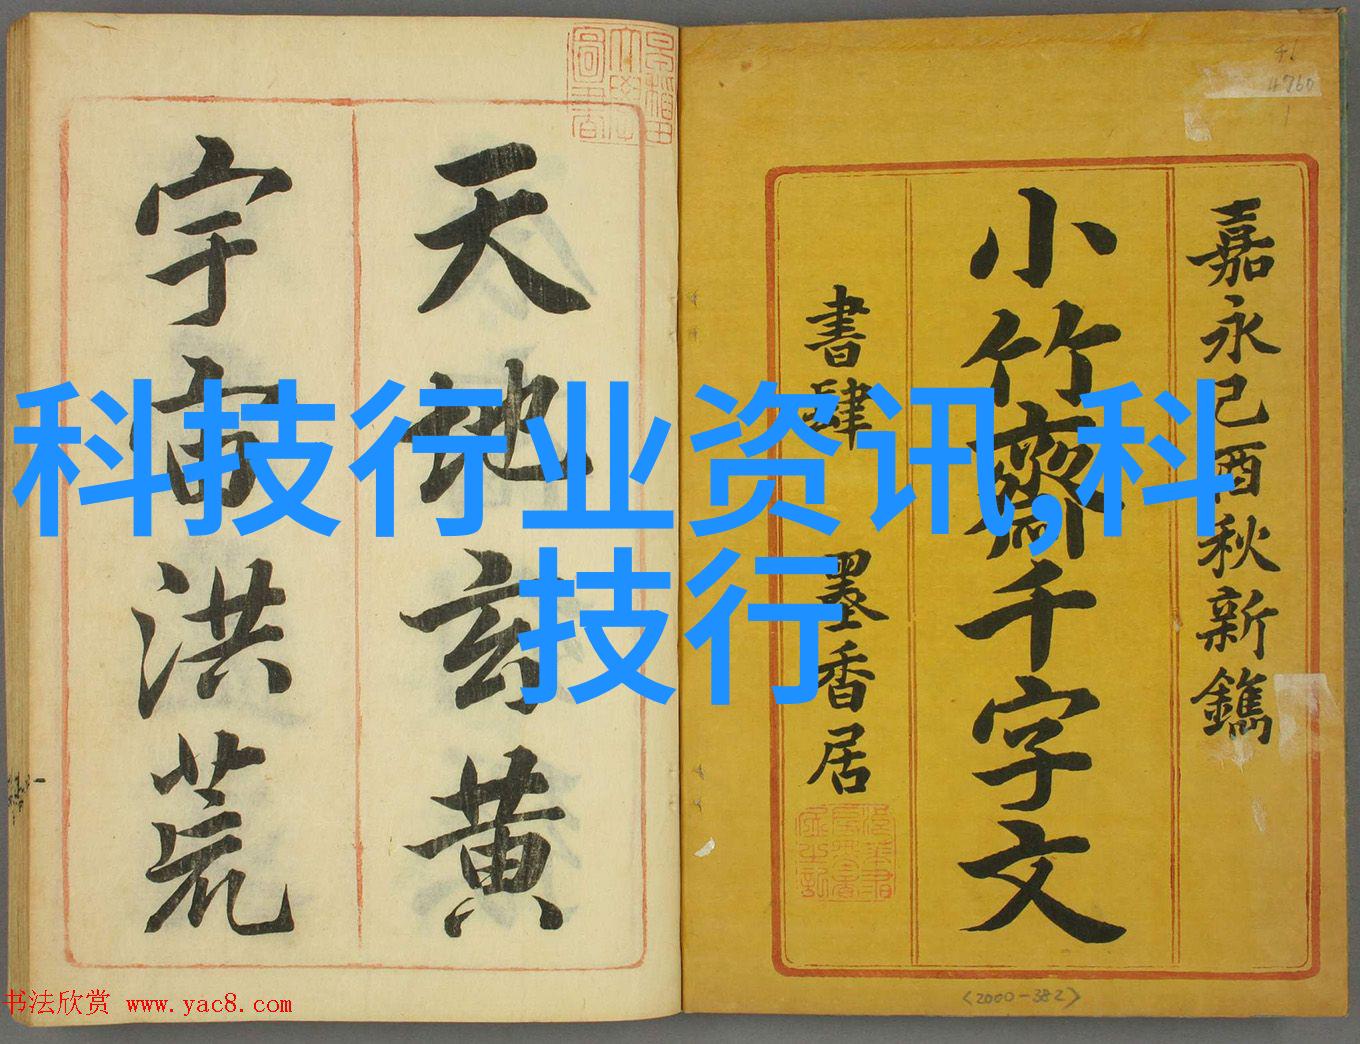 嘉永己酉秋新鐫
小竹齋千字文
書肆 墨香居
天地玄黃
宇宙洪荒
科技行业资讯,科
技行
4760
<2000-382>
书法欣赏 www.yac8.com